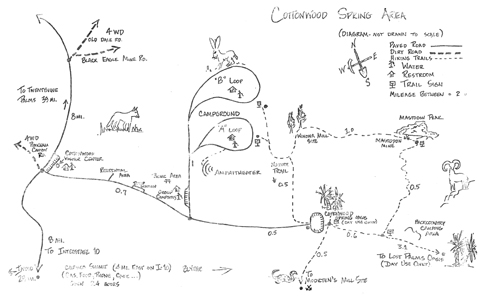 COTTONWOOD SPRING AREA
(DIAGRAM - NOT DRAWN TO SCALE)
N
E
W
S
PAVED ROAD
DIRT ROAD
HIKING TRAILS
WATER
RESTROOM
TRAIL SIGN
MILEAGE BETWEEN
4WD
OLD DALE RD.
BLACK EAGLE MINE RD.
TO TWENTYNINE
PALMS 39 MI.
8 MI.
4WD
PINKHAM
CANYON
RD.
COTTONWOOD
VISITOR CENTER
RESIDENTIAL
AREA
0.7
"B" LOOP
CAMPGROUND
"A" LOOP
AMPHITHEATER
GROUP
CAMPGROUND
NATURE
TRAIL
0.5
WINONA MILL
SITE
1.0
MASTODON PEAK
MASTODON
MINE
0.5
COTTONWOOD
SPRING OASIS
(DAY USE ONLY)
0.5
0.6
BACKCOUNTRY
CAMPING
AREA
3.1
TO LOST PALMS OASIS
(DAY USE ONLY)
0.5
TO
MOORTEN'S MILL SITE
8 MI.
TO INTERSTATE 10
INDIO